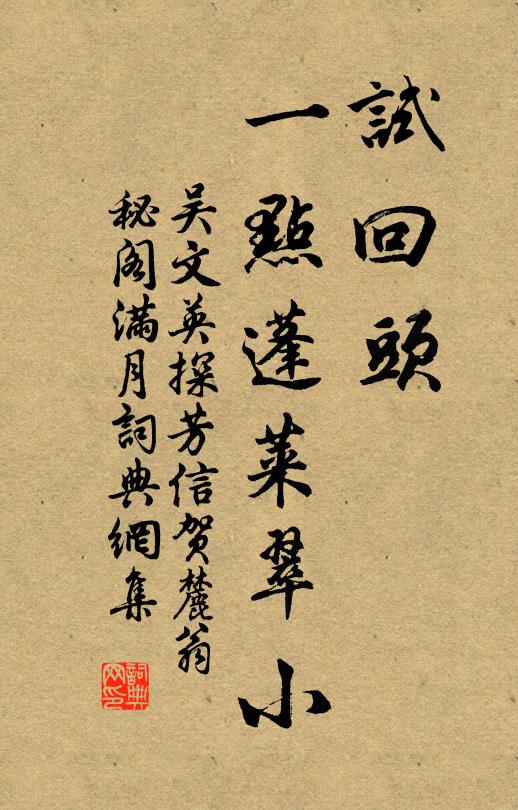 試回頭
一點蓬萊翠小
吴文英探芳信賀麓翁
秘阁滿月詞典網集
詞典网印